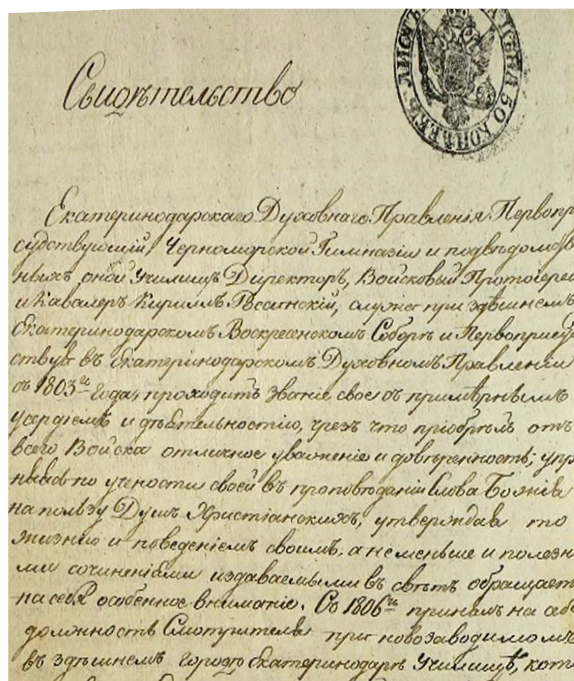 ЛИСТЪ ЦѢНА 50 КОПѢЕКЪ
Свидѣтельство
Екатеринодарскаго Духовнаго Правленія Первопри
судствующій, Черноморской Гимназіи и подвѣдомствен
ныхъ оной Училищъ Директоръ, Войсковый Протоіерей
и Кавалеръ Кириллъ Россинскій, служа при здѣшнемъ
Екатеринодарскомъ Воскресенскомъ Соборѣ и Первоприсуд
ствуя въ Екатеринодарскомъ Духовномъ Правленіи
съ 1803го Года, проходитъ званіе свое съ примѣрнымъ
усердіемъ и дѣятельностію, чрезъ что пріобрѣлъ отъ
всего Войска отличное уваженіе и довѣренность;
по учености своей въ проповѣданіи Слова Божія
на пользу Душъ Христіанскихъ, утверждая то
жизнію и поведеніемъ своимъ, а не меньше и полезны
ми сочиненіями издаваемыми въ свѣтъ обращаетъ
на себя особенное вниманіе. Съ 1806го принялъ на себя
должность Смотрителя при новозаводимомъ
въ здѣшнемъ городѣ Екатеринодарѣ Училищѣ, кот